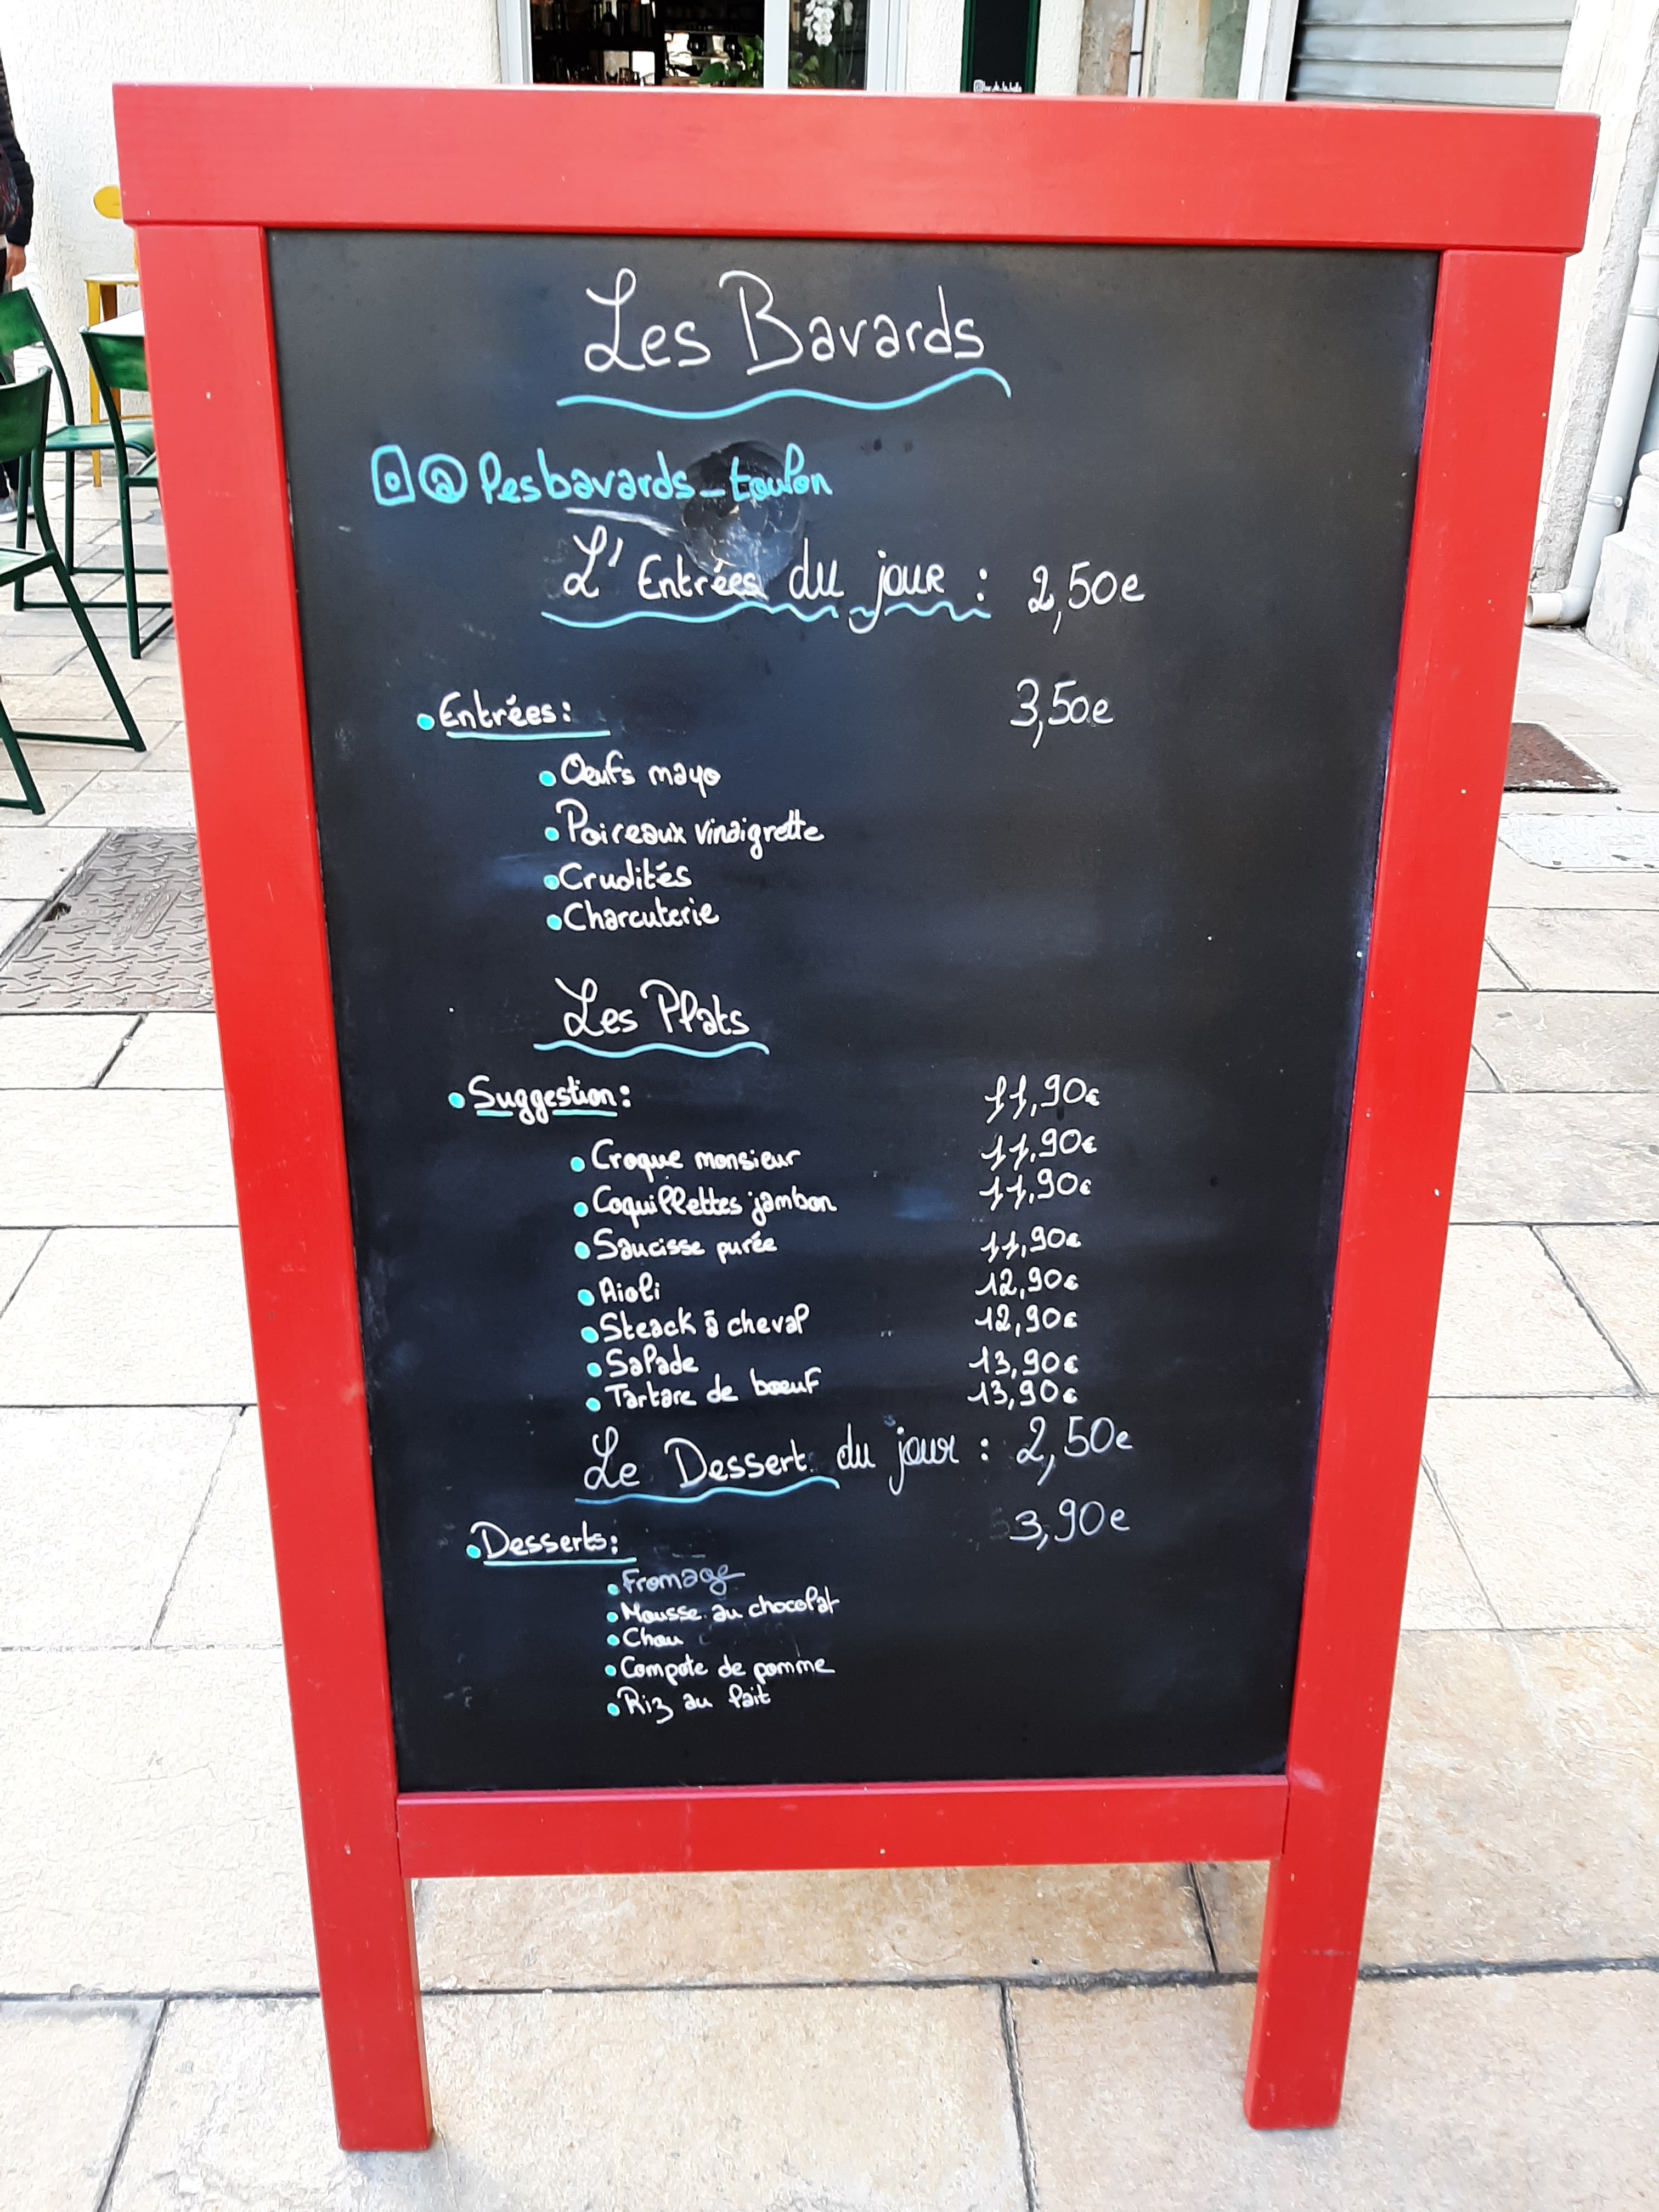 Les Bavards
@lesbavards_toulon
L'Entrées du jour : 2,50e
Entrées: 3,50e
Oeufs mayo
Poireaux vinaigrette
Crudités
Charcuterie
Les Plats
Suggestion: 11,90€
Croque monsieur 11,90€
Coquillettes jambon 11,90€
Saucisse purée 11,90€
Aioli 12,90€
Steack à cheval 12,90€
Salade 13,90€
Tartare de boeuf 13,90€
Le Dessert du jour : 2,50e
Desserts: 3,90e
Fromage
Mousse au chocolat
Chou
Compote de pomme
Riz au lait